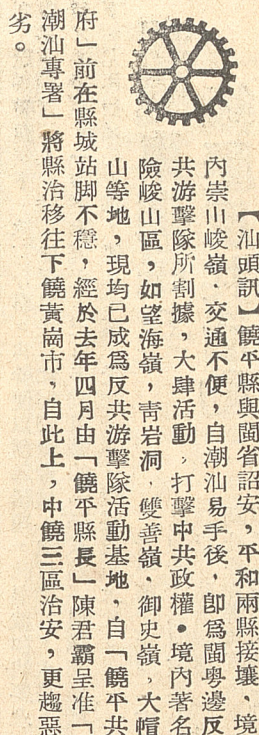 【汕頭訊】饒平縣與閩省詔安，平和兩縣接壤，境
內崇山峻嶺．交通不便，自潮汕易手後，卽爲閩粵邊反
共游擊隊所割據，大肆活動，打擊中共政權●境內著名
險峻山區，如望海嶺，靑岩洞．雙善嶺，御史嶺，大帽
山等地，現均已成爲反共游擊隊活動基地，自「饒平共
府」前在縣城站脚不穩，經於去年四月由「饒平縣長」陳君霸呈准「
潮汕專署」將縣治移往下饒黃崗市，自此上，中饒三區治安，更趨惡
劣。